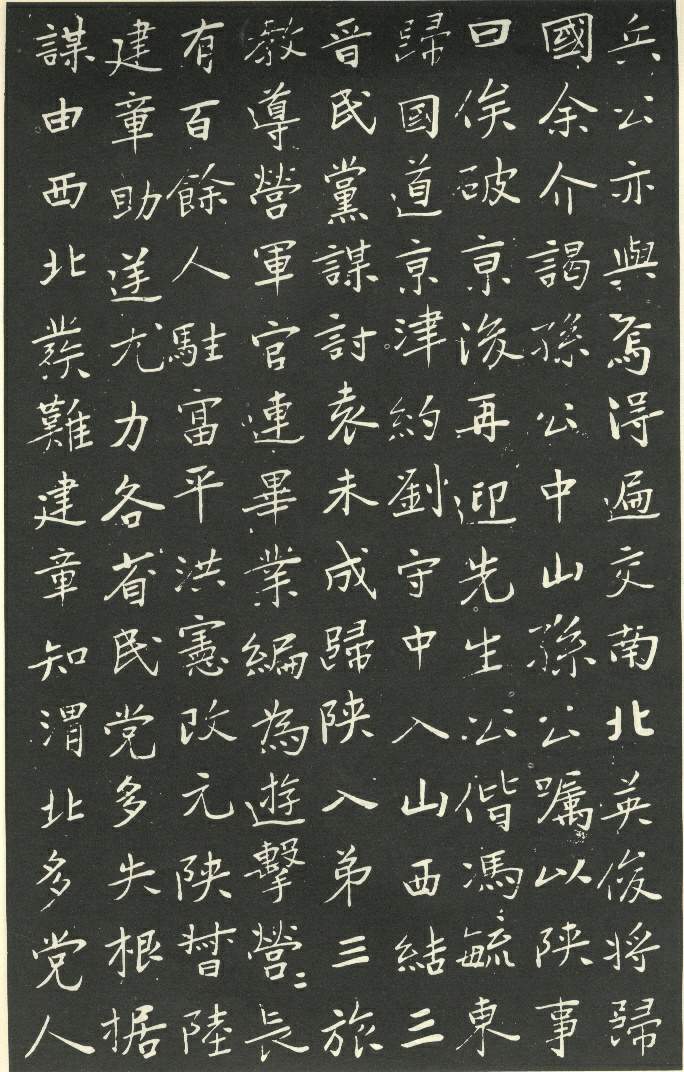 兵公亦與焉得遍交南北英俊将歸
國余介謁孫公中山孫公嘱以陕事
曰俟破京後再迎先生公偕馮毓東
歸國道京津約劉守中入山西結三
晋民黨謀討袁未成歸陕入弟三旅
教導營軍官連畢業編為遊擊營〻長
有百餘人駐富平洪憲改元陕督陸
建章助逆尤力各省民党多失根据
謀由西北發難建章知渭北多党人